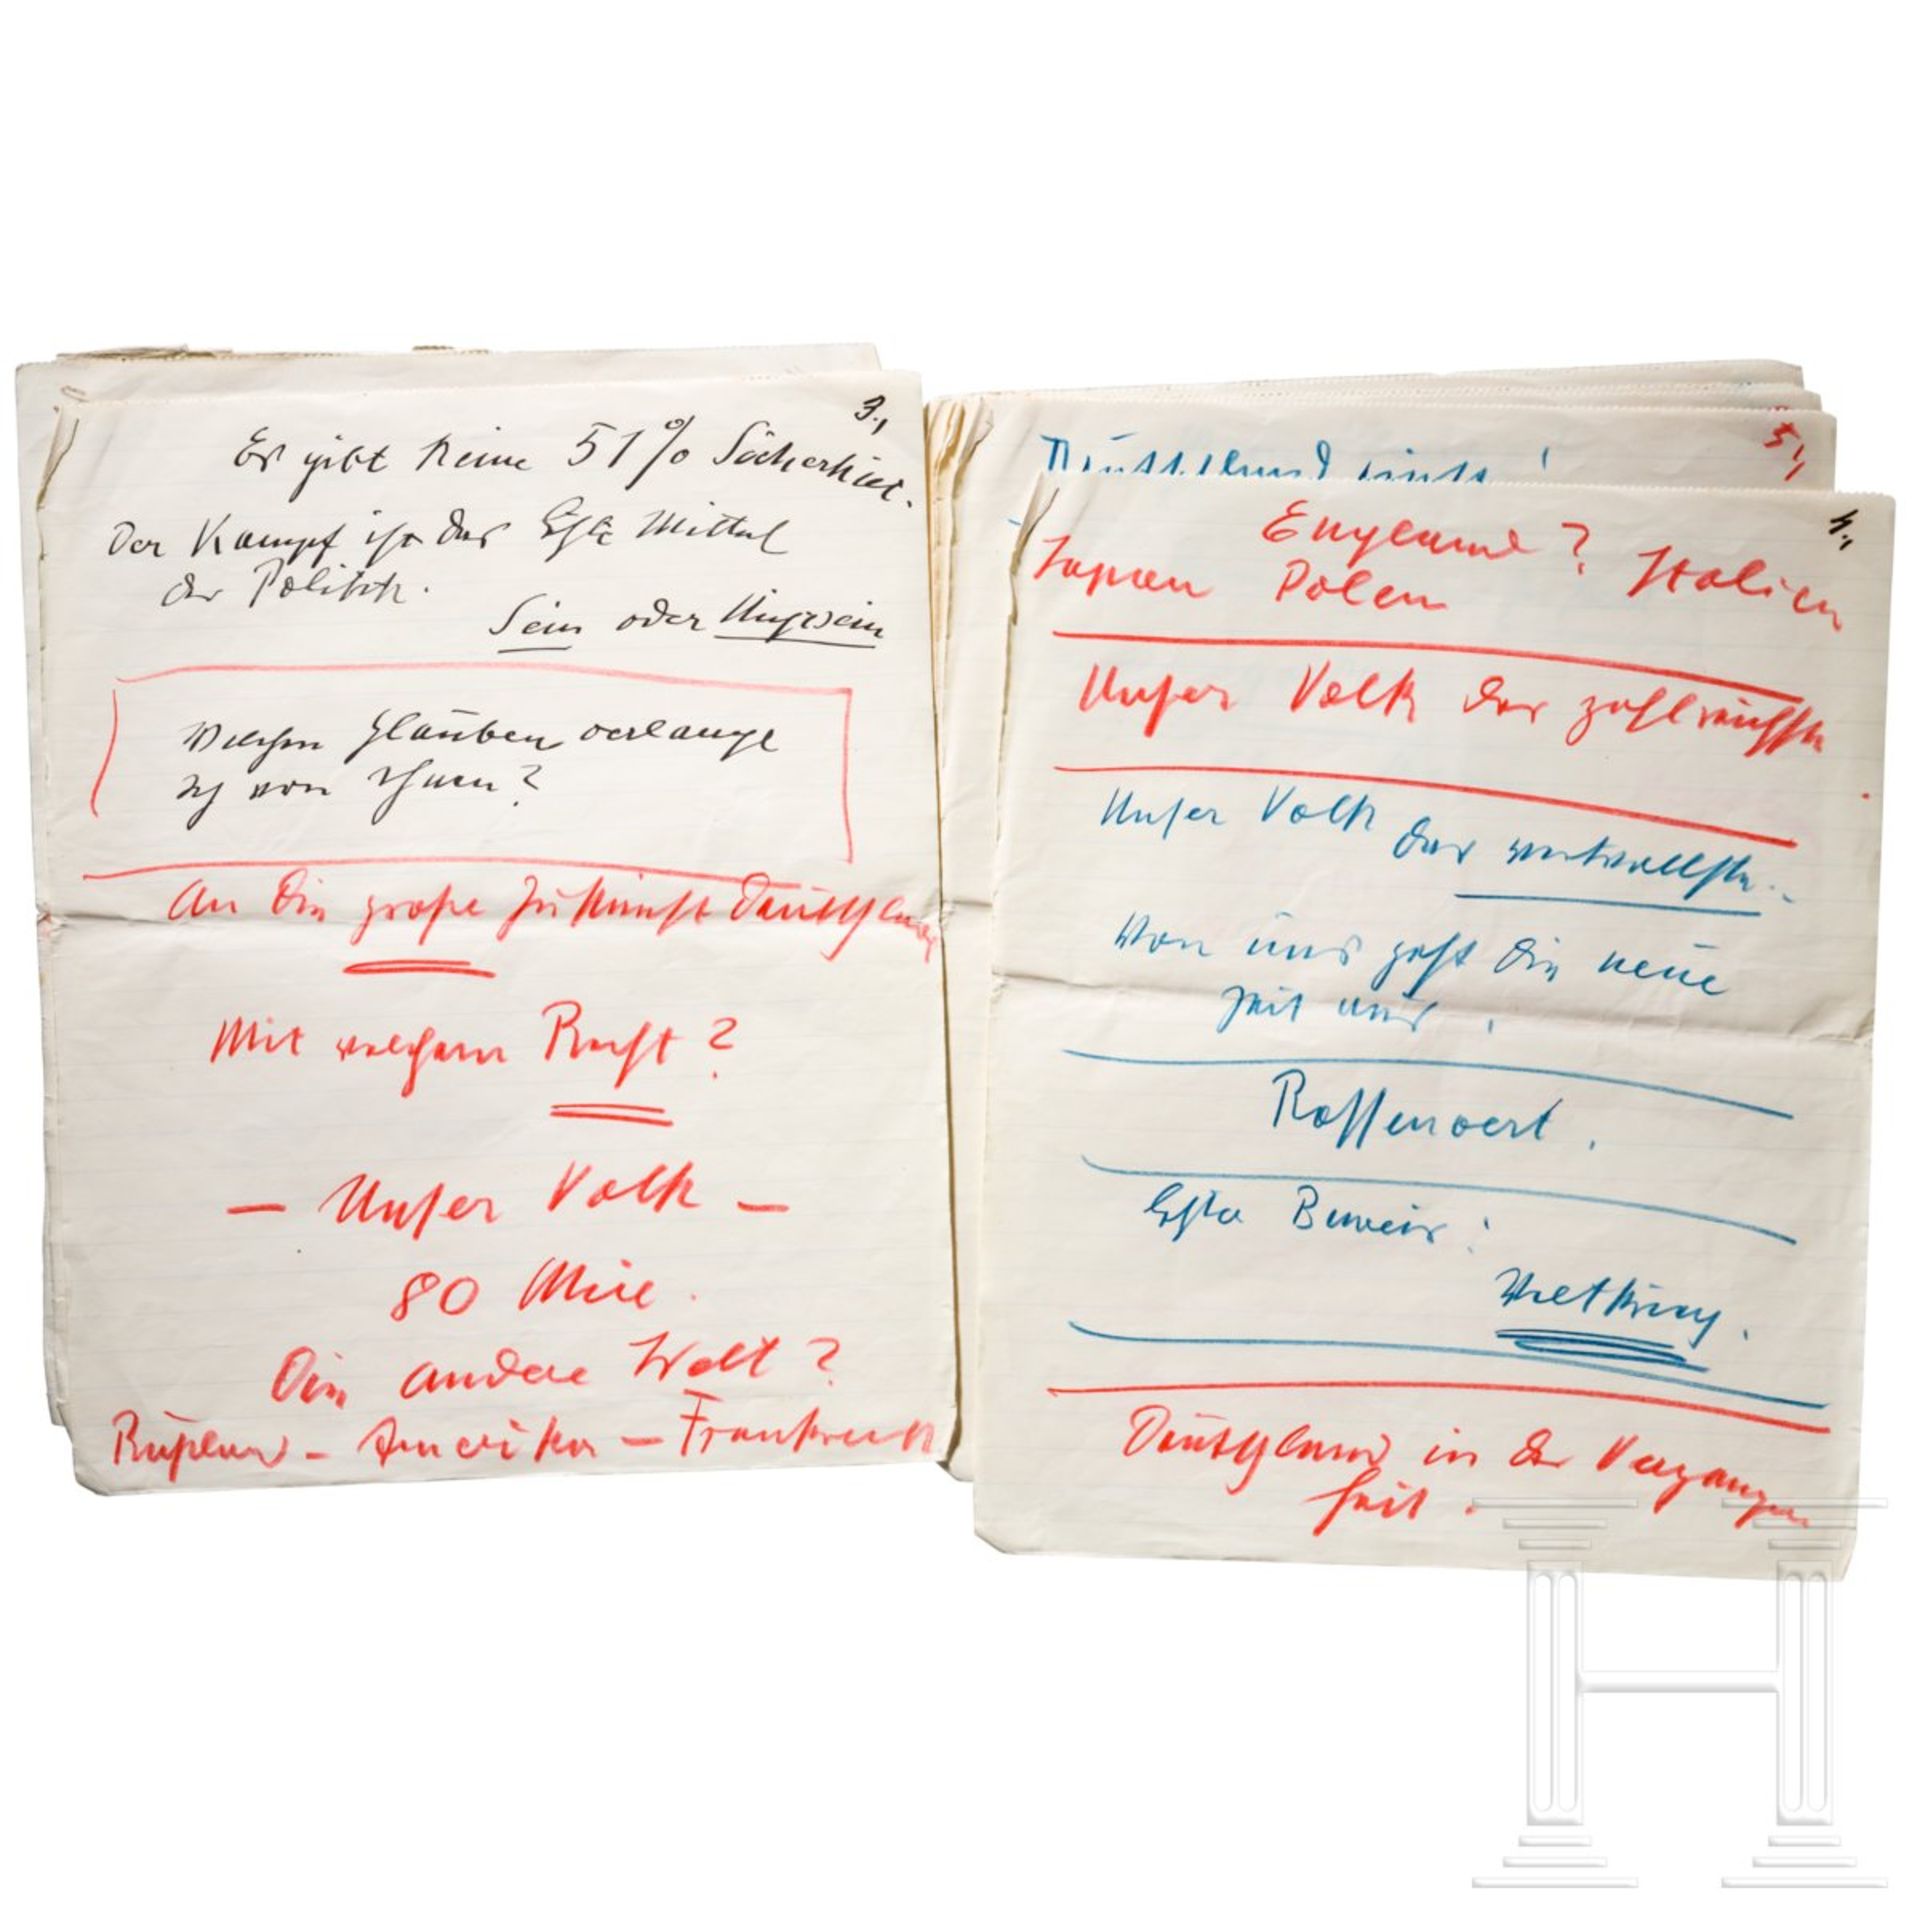 3.,
Es gibt keine 51% Sicherheit.
Der Kampf ist das letzte Mittel
der Politik.
Sein oder Nichtsein
Welchen Glauben verlange
ich von Ihnen?
An die große Zukunft Deutschlands
Mit welchem Recht?
– Unser Volk –
80 Mill.
Die andere Welt?
Rußland – Amerika – Frankreich
5.,
Deutschland einst !
4.,
England? Italien
Japan Polen
Unser Volk das zahlreichste
Unser Volk das wertvollste.
Von uns geht die neue
Zeit aus.
Rassenwert.
Letzter Beweis:
Weltkrieg.
Deutschland in der Vergangen
heit.
H